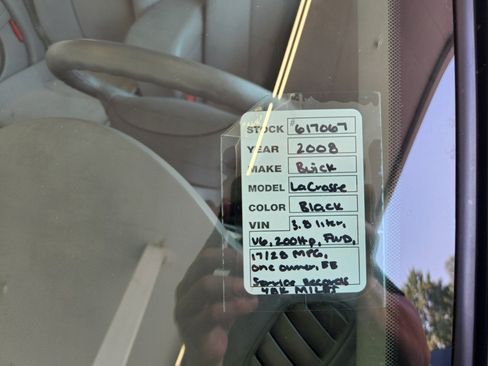 STOCK # 617067
YEAR 2008
MAKE Buick
MODEL LaCrosse
COLOR Black
VIN 3.8 liter,
V6, 200Hp, FWD,
17/28 MPG,
one owner,
Service Records
48K MILES